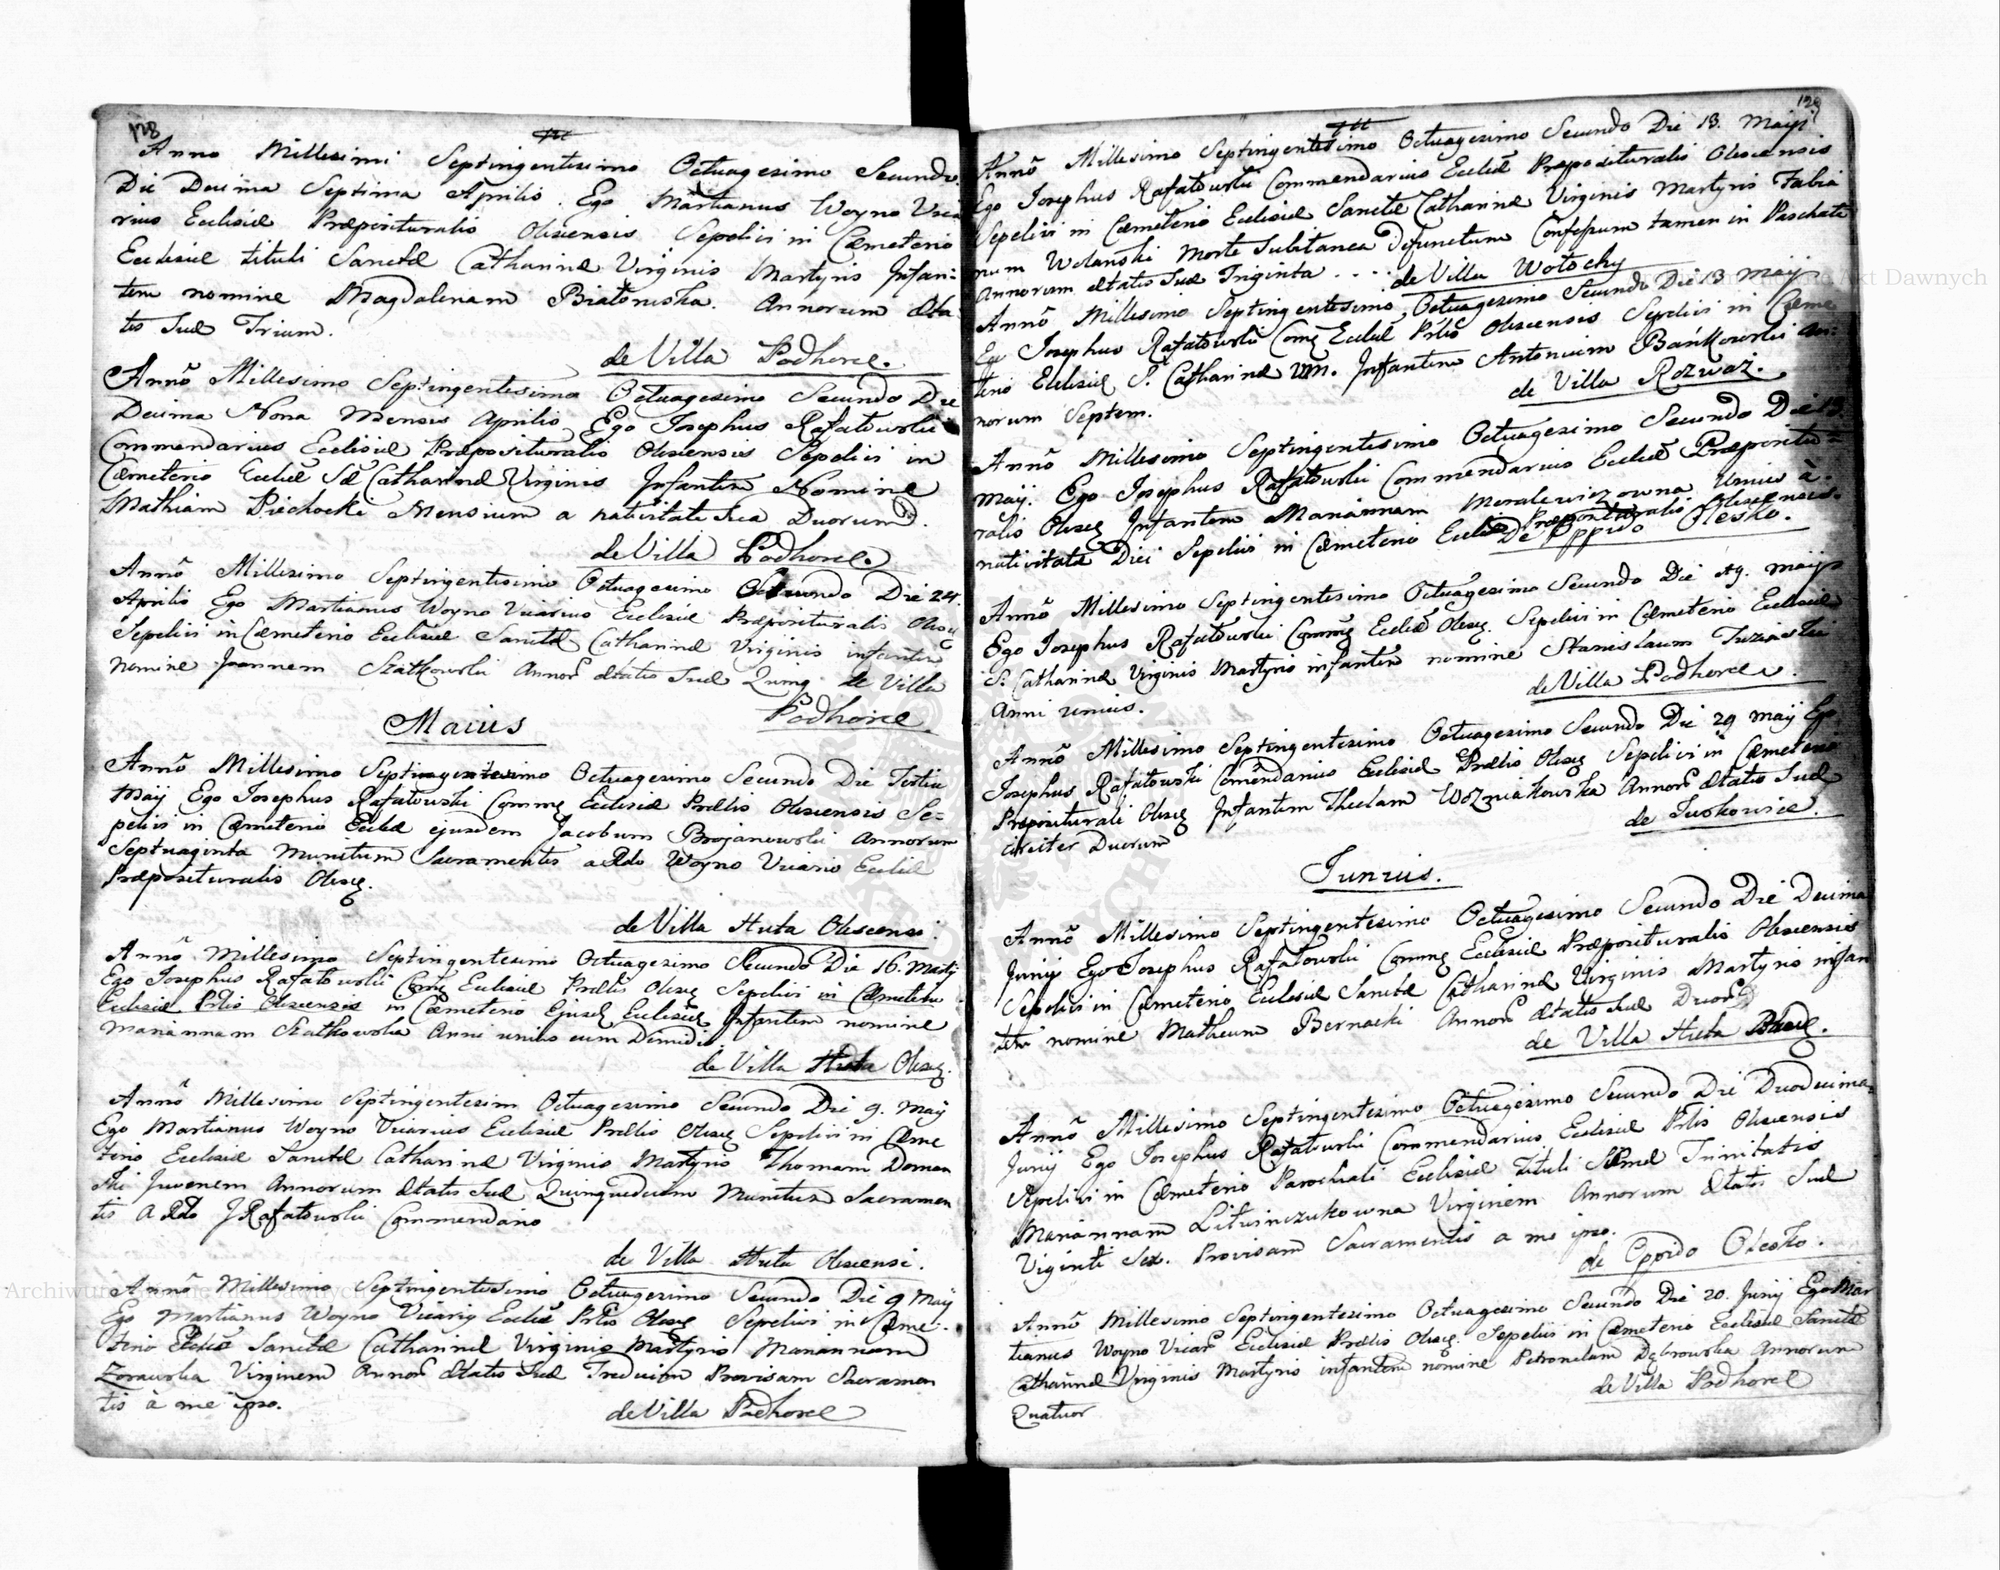 128
Anno Millesimi Septingentesimo Octuagesimo Secundo.
Die Decima Septima Aprilis. Ego Martianus Woyno Vica
rius Ecclesiæ Præposituralis Olescensis Sepelivi in Cæmeterio
Ecclesiæ tituli Sanctæ Catharinæ Virginis Martyris Infan:
tem nomine Magdalenam Białoniska. Annorum æta
tis suæ Trium.
de Villa Podhorce.
Anno Millesimo Septingentesimo Octuagesimo Secundo Die
Decima Nona Mensis Aprilis Ego Josephus Rafałowski
Commendarius Ecclesiæ Præposituralis Olescensis Sepelivi in
Cæmeterio Eccliæ Sæ Catharinæ Virginis Infantem Nomine
Mathiam Piechocki Mensium a nativitate sua Duorum.
de Villa Podhorce.
Anno Millesimo Septingentesimo Octuagesimo Secundo Die 24.
Aprilis Ego Martianus Woyno Vicarius Ecclesiæ Præposituralis
Sepelivi in Cæmeterio Ecclesiæ Sanctæ Catharinæ Virginis infantem
nomine Joannem Szatkowski Annor ætatis suæ Quinq de Villa
Podhorce
Maius
Anno Millesimo Septingentesimo Octuagesimo Secundo Die Tertia
Maij Ego Josephus Rafałowski Comm Ecclesiæ Prælis Olescensis Se=
pelivi in Cæmeterio Eccliæ ejusdem Jacobum Brojanowski Annorum
Septuaginta Munitum Sacramentis a Rdo Woyno Vicario Eccliæ
Præposituralis Olesc.
de Villa Huta Olescensi.
Anno Millesimo Septingentesimo Octuagesimo Secundo Die 16. Maij
Ego Josephus Rafałowski Com Ecclesiæ Prælis Olesc Sepelivi in Cæmeterio
Ecclesiæ Prlis Olescensis in Cæmeterio Ejusd Ecclesiæ Infantem nomine
Mariannam Szatkowska Anni unius cum Dimidio
de Villa Huta Olesc.
Anno Millesimo Septingentesim Octuagesimo Secundo Die 9. Maij
Ego Martianus Woyno Vicarius Ecclesiæ Prælis Olesc Sepelivi in Cæme
terio Ecclesiæ Sanctæ Catharinæ Virginis Martyris Thomam Doman
ski Juvenem Annorum ætatis suæ Quinquedecim Munitum Sacramen
tis a Rdo J Rafałowski Commendario
de Villa Huta Olescensi.
Anno Millesimo Septingentesimo Octuagesimo Secundo Die 9 Maij
Ego Martianus Woyno Vicariq Eccliæ Prlis Olesc Sepelivi in Cæme-
terio Eccliæ Sanctæ Catharinæ Virginis Martyris Mariannam
Zorawska Virginem Annor ætatis suæ Tredecim Provisam Sacramen
tis à me ipso.
de Villa Podhorce
129
Anno Millesimo Septingentesimo Octuagesimo Secundo Die 13. Maij
Ego Josephus Rafałowski Commendarius Eccliæ Præposituralis Olescensis
Sepelivi in Cæmeterio Ecclesiæ Sanctæ Catharinæ Virginis Martyris Fabia
num Wolanski Morte Subitanea Defunctum Confessum tamen in Paschate
Annorum ætatis suæ Triginta . . . . de Villa Wołochy
Anno Millesimo Septingentesimo Octuagesimo Secundo Die 13 Maij
Ego Josephus Rafałowski Com Eccliæ Prlis Olescensis Sepelivi in Cæme
terio Ecclesiæ S. Catharinæ VM. Infantem Antonium Bańkowski An:
norum Septem.
de Villa Rozwaz.
Anno Millesimo Septingentesimo Octuagesimo Secundo Die 13.
Maij. Ego Josephus Rafałowski Commendarius Eccliæ Præpositu=
ralis Olesc Infantem Mariannam Moralewiczowna Unius à
nativitate Diei Sepelivi in Cæmeterio Eccliæ Præposituralis Olescensis.
De Oppido Olesko.
Anno Millesimo Septingentesimo Octuagesimo Secundo Die 19. Maij
Ego Josephus Rafałowski Comm Eccliæ Olesc. Sepelivi in Cæmeterio Ecclesiæ
S. Catharinæ Virginis Martyris infantem nomine Stanislaum
Anni unius.
de Villa Podhorce.
Anno Millesimo Septingentesimo Octuagesimo Secundo Die 29 Maij Ego
Josephus Rafałowski Comendarius Ecclesiæ Prælis Olesc Sepelivi in Cæmeterio
Præposituralis Olesc Infantem Theclam Wozniakowska Annor ætatis suæ
circiter Duorum
de Juskowice.
Junius.
Anno Millesimo Septingentesimo Octuagesimo Secundo Die Decima
Junij Ego Josephus Rafałowski Comm Ecclesiæ Præposituralis Olescensis
Sepelivi in Cæmeterio Ecclesiæ Sanctæ Catharinæ Virginis Martyris infan
tem nomine Matheum Bernacki Annor ætatis suæ Duor
de Villa Huta Olesc.
Anno Millesimo Septingentesimo Octuagesimo Secundo Die Duodecima
Junij Ego Josephus Rafałowski Commendarius Ecclesiæ Prlis Olescensis
Sepelivi in Cæmeterio Parochiali Ecclesiæ tituli SSmæ Trinitatis
Mariannam Litwinczukowna Virginem Annorum ætatis suæ
Viginti Sex. Provisam Sacramentis a me ipso.
de Oppido Olesko.
Anno Millesimo Septingentesimo Octuagesimo Secundo Die 20. Junij Ego Mar
tianus Woyno Vicar Ecclesiæ Prælis Olesc Sepelivi in Cæmeterio Ecclesiæ Sanctæ
Catharinæ Virginis Martyris infantem nomine Petronelam Dębrowska Annorum
Quatuor
de Villa Podhorce